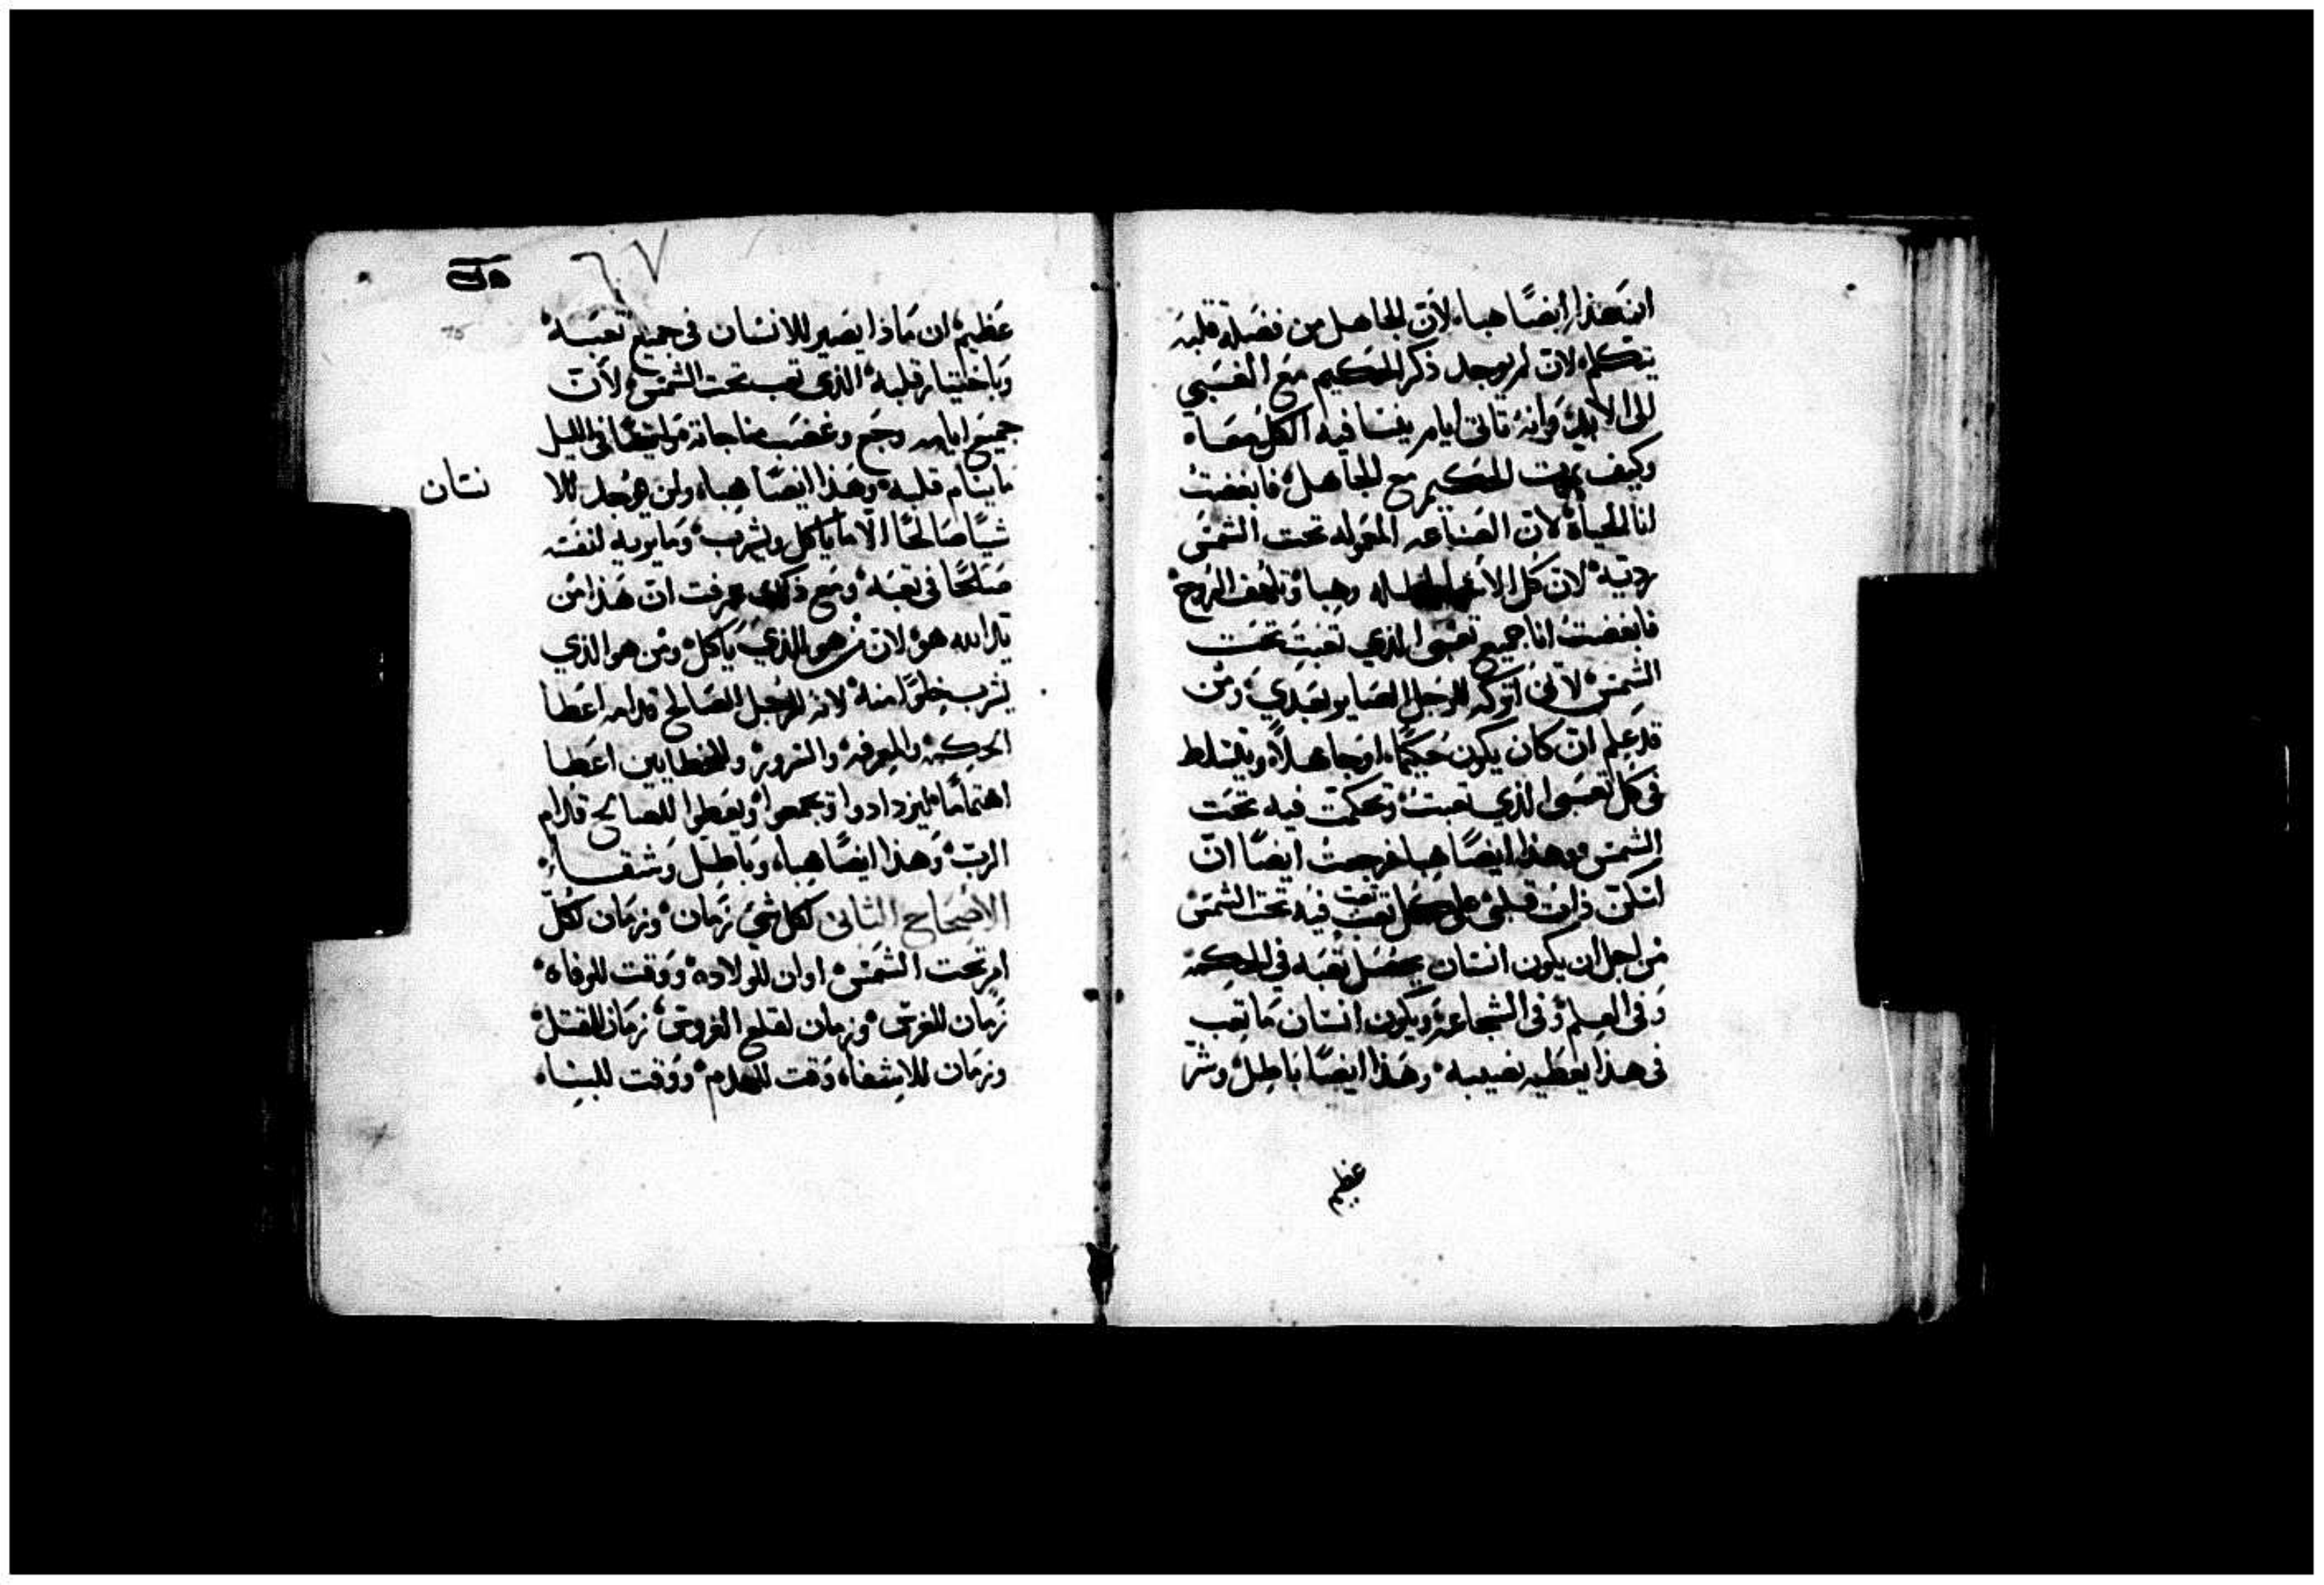 ان هذا ايضًا هباء لأن الجاهل من فضلة قلبه
يتكلم لان لم يوجد ذكر الحكيم مع الغبي
الى الابد وانه تاتى ايام ينسا فيه الكل معاه
وكيف يموت الحكيم مع الجاهل فابغضت
انا الحياة لان الصناعه المعوله تحت الشمس
رديه لان كل الاعمال باطله وهبا وتلهف الروح
فابغضت انا جميع تعبى الذي تعبت تحت
الشمس لانى اتركه للرجل الصاير بعدي ومن
قد علم ان كان يكون حكيمًا او جاهلاً ويتسلط
فى كل تعبى الذي تعبت وتحكمت فيه تحت
الشمس وهذا ايضًا هبا فرجعت ايضًا انا
تعبت فيه تحت الشمس
من اجل ان يكون انسان يحصل تعبه في الحكمه
وفى العلم وفى الشجاعة ويكون انسان ما تعب
فى هذا يعطيه نصيبه وهذا ايضًا باطل وشر
عظيم
٦٧
عظيم ان ماذا يصير للانسان فى جميع تعبه
وباختيار قلبه الذى تعب تحت الشمس لأن
جميع ايامه وجع وغضب مناجاته وايضًا فى الليل
ما ينام قلبه وهذا ايضًا هباء ولن يوجد للا
نسان
شيًا صالحًا الا ما ياكل ويشرب وما يريه لنفسه
صلحًا فى تعبه ومع ذلك عرفت ان هذا من
يد الله هو لان من هو الذي ياكل ومن هو الذي
يشرب خلوًا منه لانه للرجل الصالح قدامه اعطا
الحكمه والمعرفه والسرور وللخطايين اعطا
اهتمامًا ليزدادوا ويجمعوا ويعطوا للصالح قدام
الرب وهذا ايضًا هباء وباطل وشقاء
الاصحاح الثانى لكل شي زمان وزمان لكل
امر تحت الشمس اوان للولاده ووقت للوفاه
زمان للغرس وزمان لقلع الغروس زمان للقتل
وزمان للاشفاء وقت للهدم ووقت للبناء